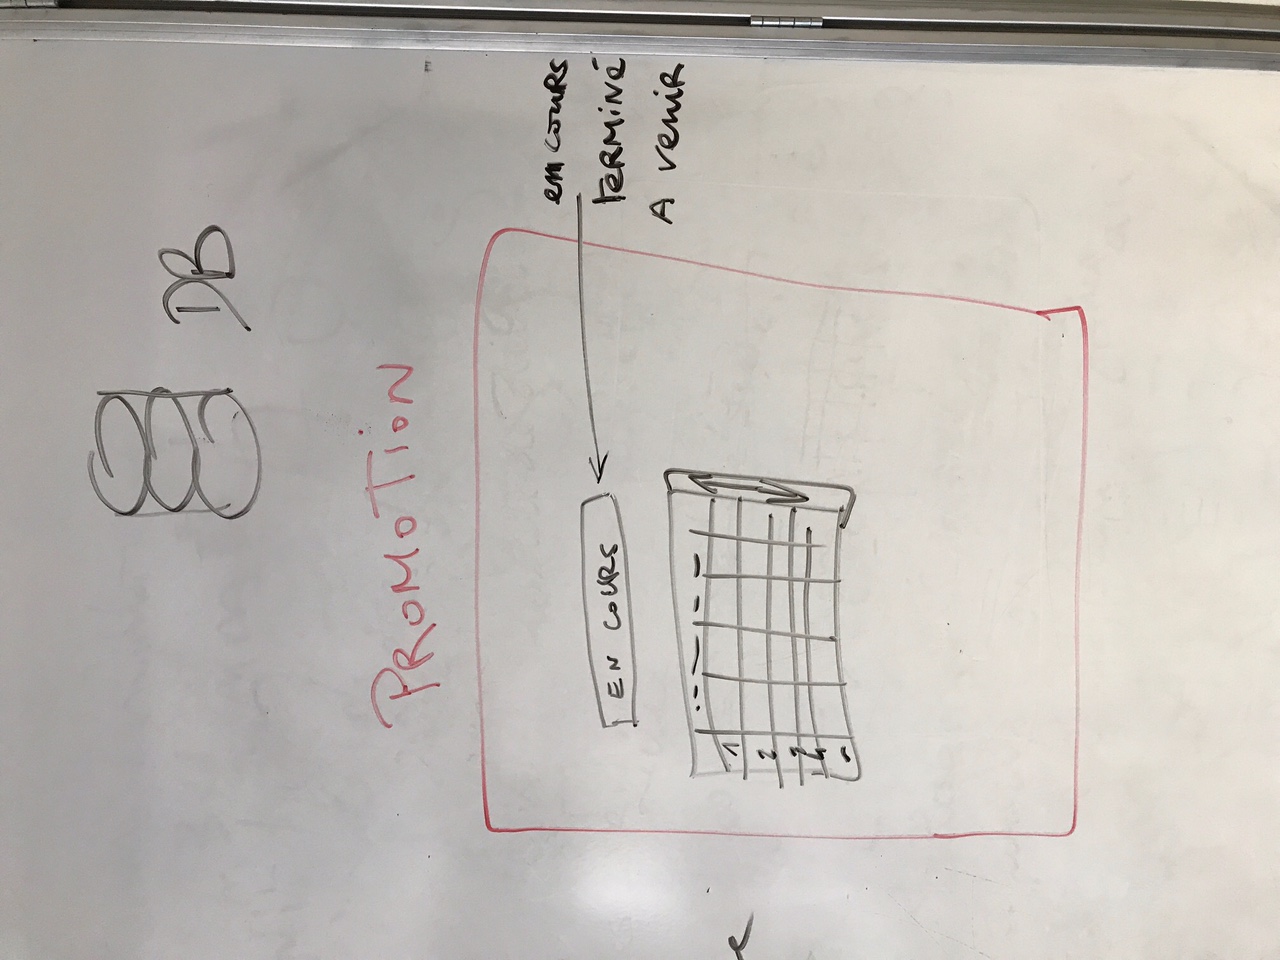 DB
PROMOTiON
EN COURS
en cours
TERMiNÉ
A venir
1
2
3
4